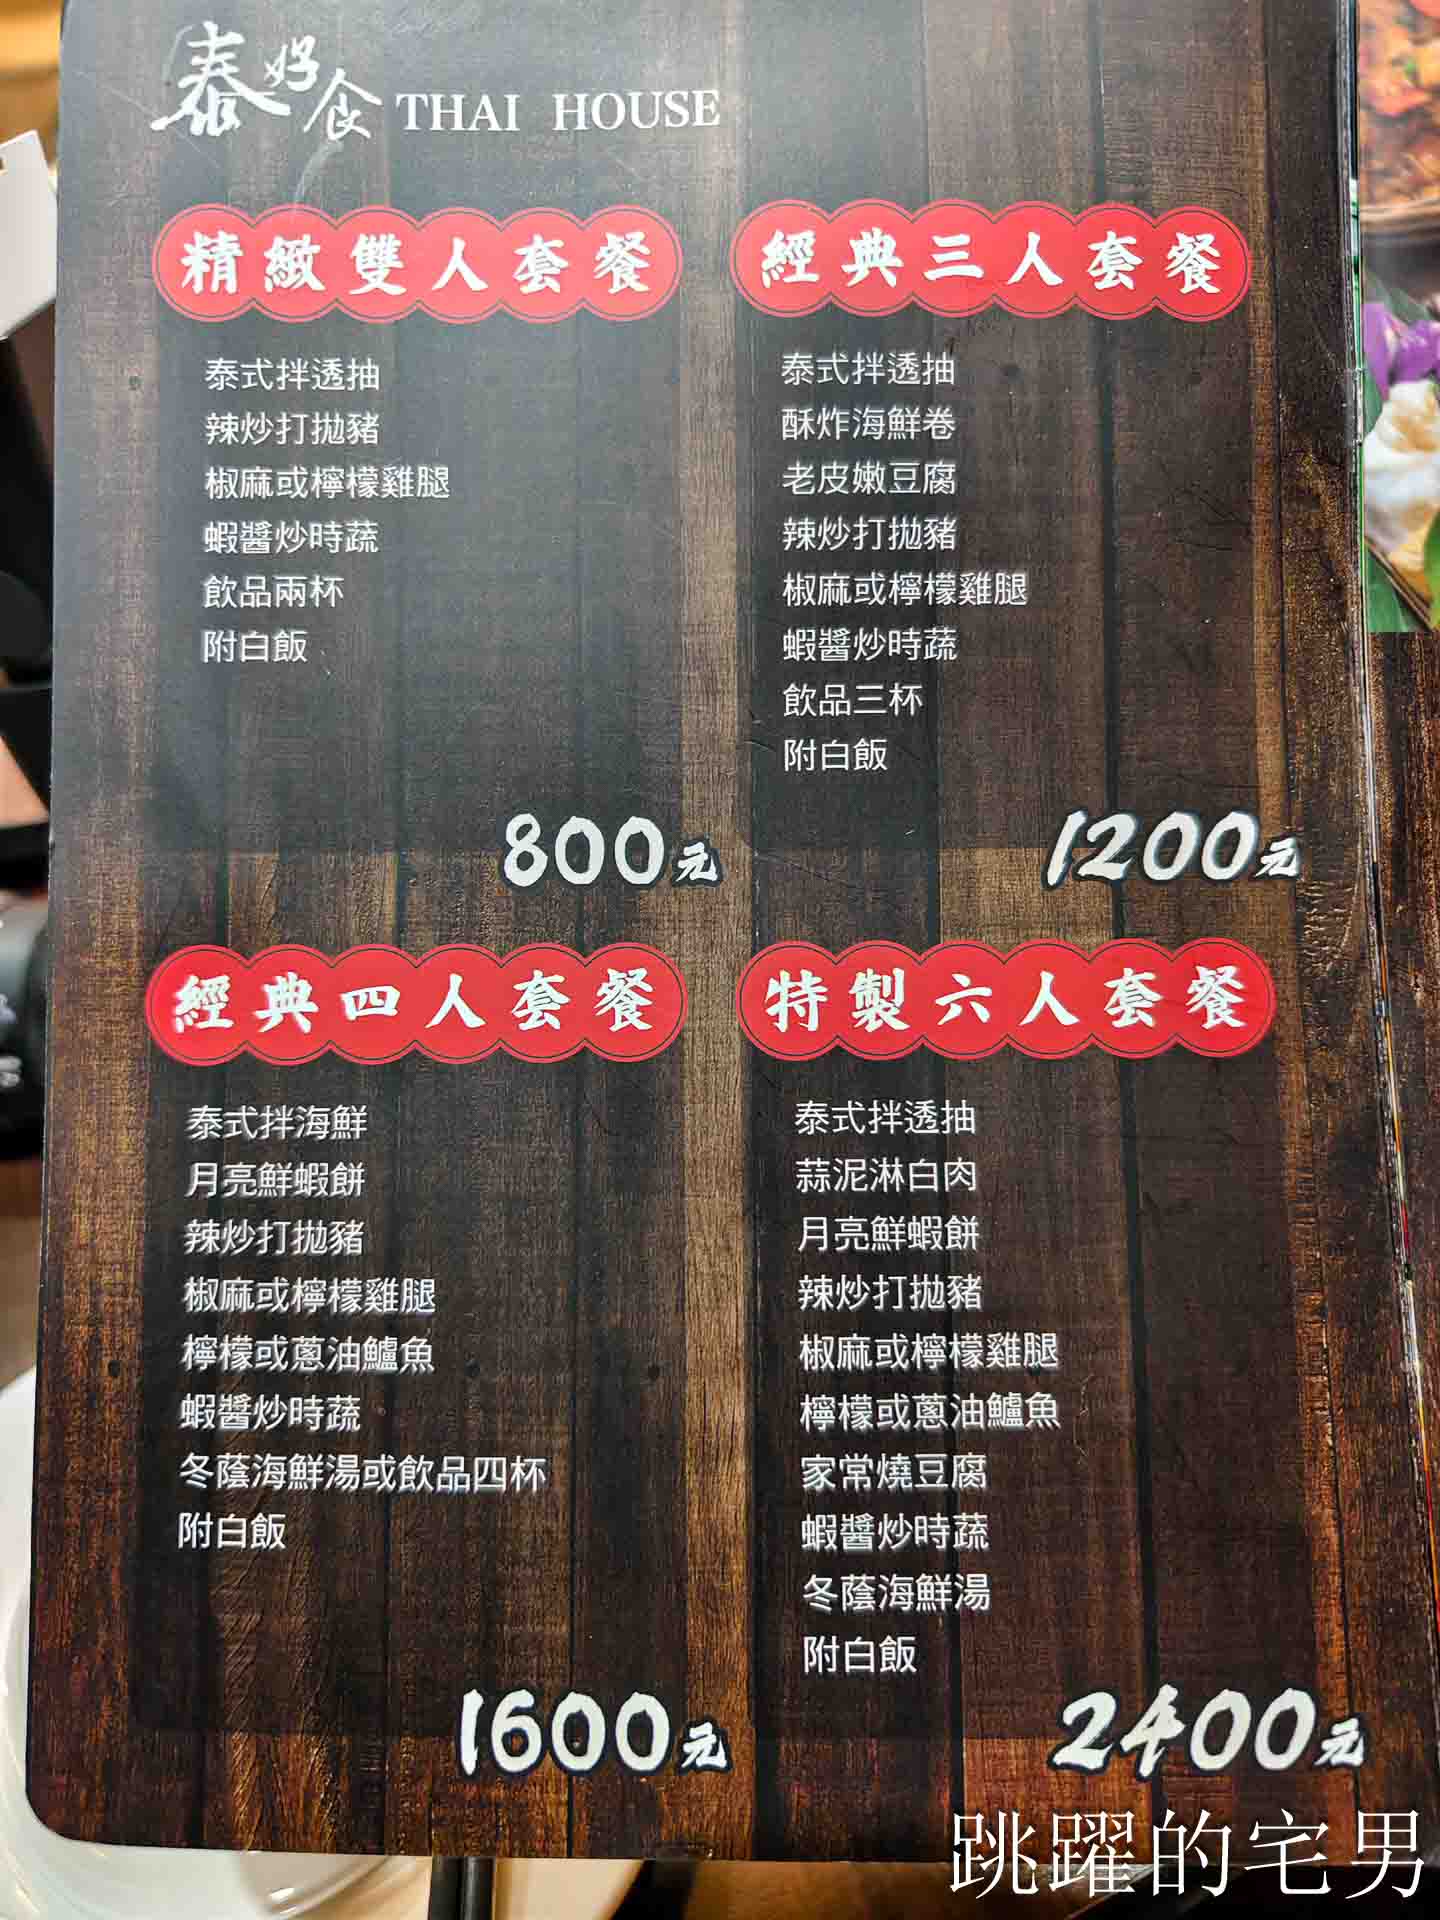 泰好食 THAI HOUSE
精緻雙人套餐
泰式拌透抽
辣炒打拋豬
椒麻或檸檬雞腿
蝦醬炒時蔬
飲品兩杯
附白飯
800元
經典三人套餐
泰式拌透抽
酥炸海鮮卷
老皮嫩豆腐
辣炒打拋豬
椒麻或檸檬雞腿
蝦醬炒時蔬
飲品三杯
附白飯
1200元
經典四人套餐
泰式拌海鮮
月亮鮮蝦餅
辣炒打拋豬
椒麻或檸檬雞腿
檸檬或蔥油鱸魚
蝦醬炒時蔬
冬蔭海鮮湯或飲品四杯
附白飯
1600元
特製六人套餐
泰式拌透抽
蒜泥淋白肉
月亮鮮蝦餅
辣炒打拋豬
椒麻或檸檬雞腿
檸檬或蔥油鱸魚
家常燒豆腐
蝦醬炒時蔬
冬蔭海鮮湯
附白飯
2400元
跳躍的宅男